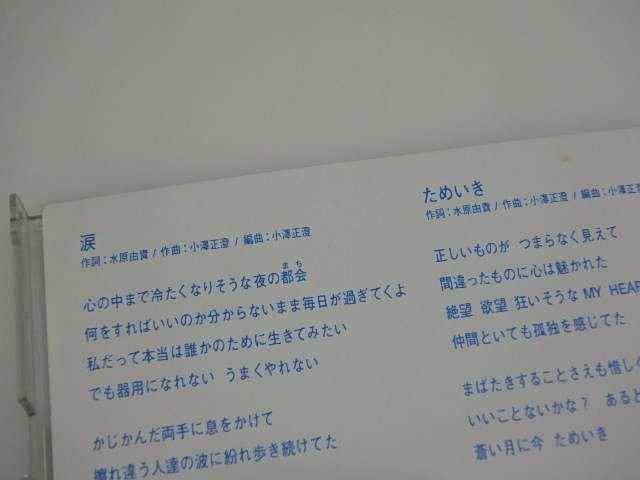 涙
作詞：水原由貴 / 作曲：小澤正澄 / 編曲：小澤正澄
心の中まで冷たくなりそうな夜の都会
まち
何をすればいいのか分からないまま毎日が過ぎてくよ
私だって本当は誰かのために生きてみたい
でも器用になれない うまくやれない
かじかんだ両手に息をかけて
擦れ違う人達の波に紛れ歩き続けてた
ためいき
作詞：水原由貴 / 作曲：小澤正澄 / 編曲：小澤正
正しいものが つまらなく見えて
間違ったものに心は魅かれた
絶望 欲望 狂いそうな MY HEAR
仲間といても孤独を感じてた
まばたきすることさえも惜しく
いいことないかな？ あると
蒼い月に今 ためいき